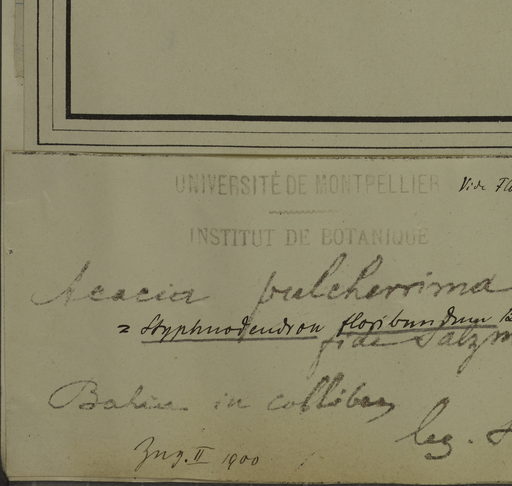 UNIVERSITÉ DE MONTPELLIER
Vide Flo
INSTITUT DE BOTANIQUE
Acacia pulcherrima
= Styphnodendron floribundum B
fide Salzm
Bahia in collibus
leg.
II 1900